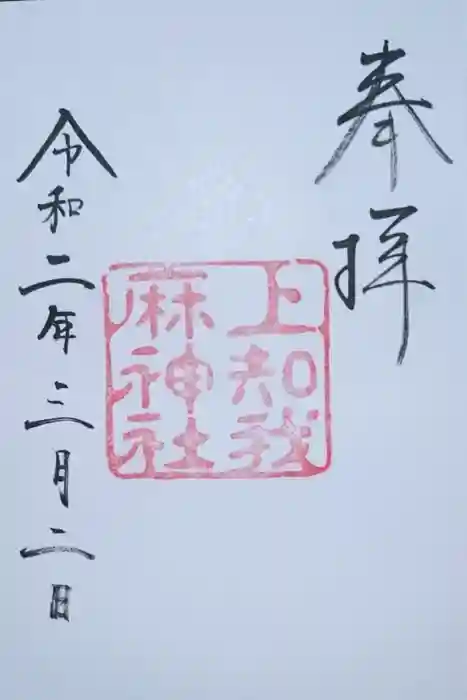 奉拝
上知我
麻神社
令和二年三月二日